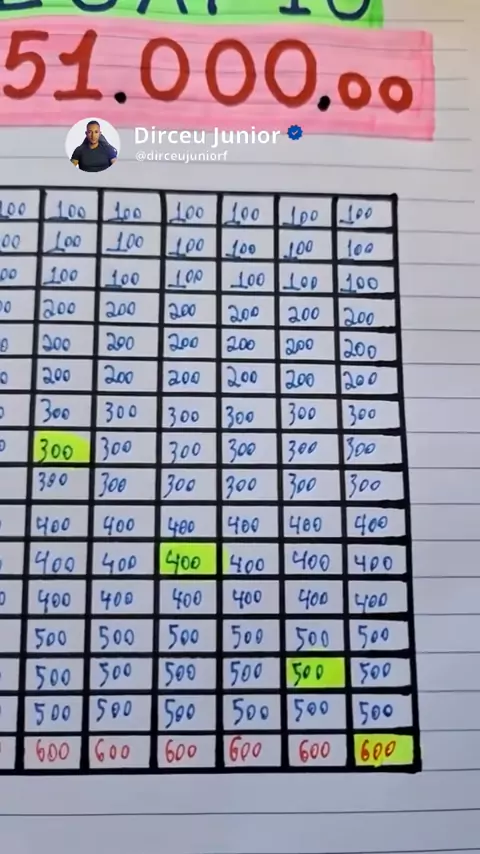 51.000,00
Dirceu Junior
@dirceujuniorf
100 100 100 100 100 100 100
00 100 100 100 100 100 100
00 100 100 100 100 100 100
00 200 200 200 200 200 200
0 200 200 200 200 200 200
0 200 200 200 200 200 200
300 300 300 300 300 300
0 300 300 300 300 300 300
300 300 300 300 300 300
400 400 400 400 400 400
0 400 400 400 400 400 400
0 400 400 400 400 400 400
500 500 500 500 500 500
500 500 500 500 500 500
500 500 500 500 500 500
600 600 600 600 600 600